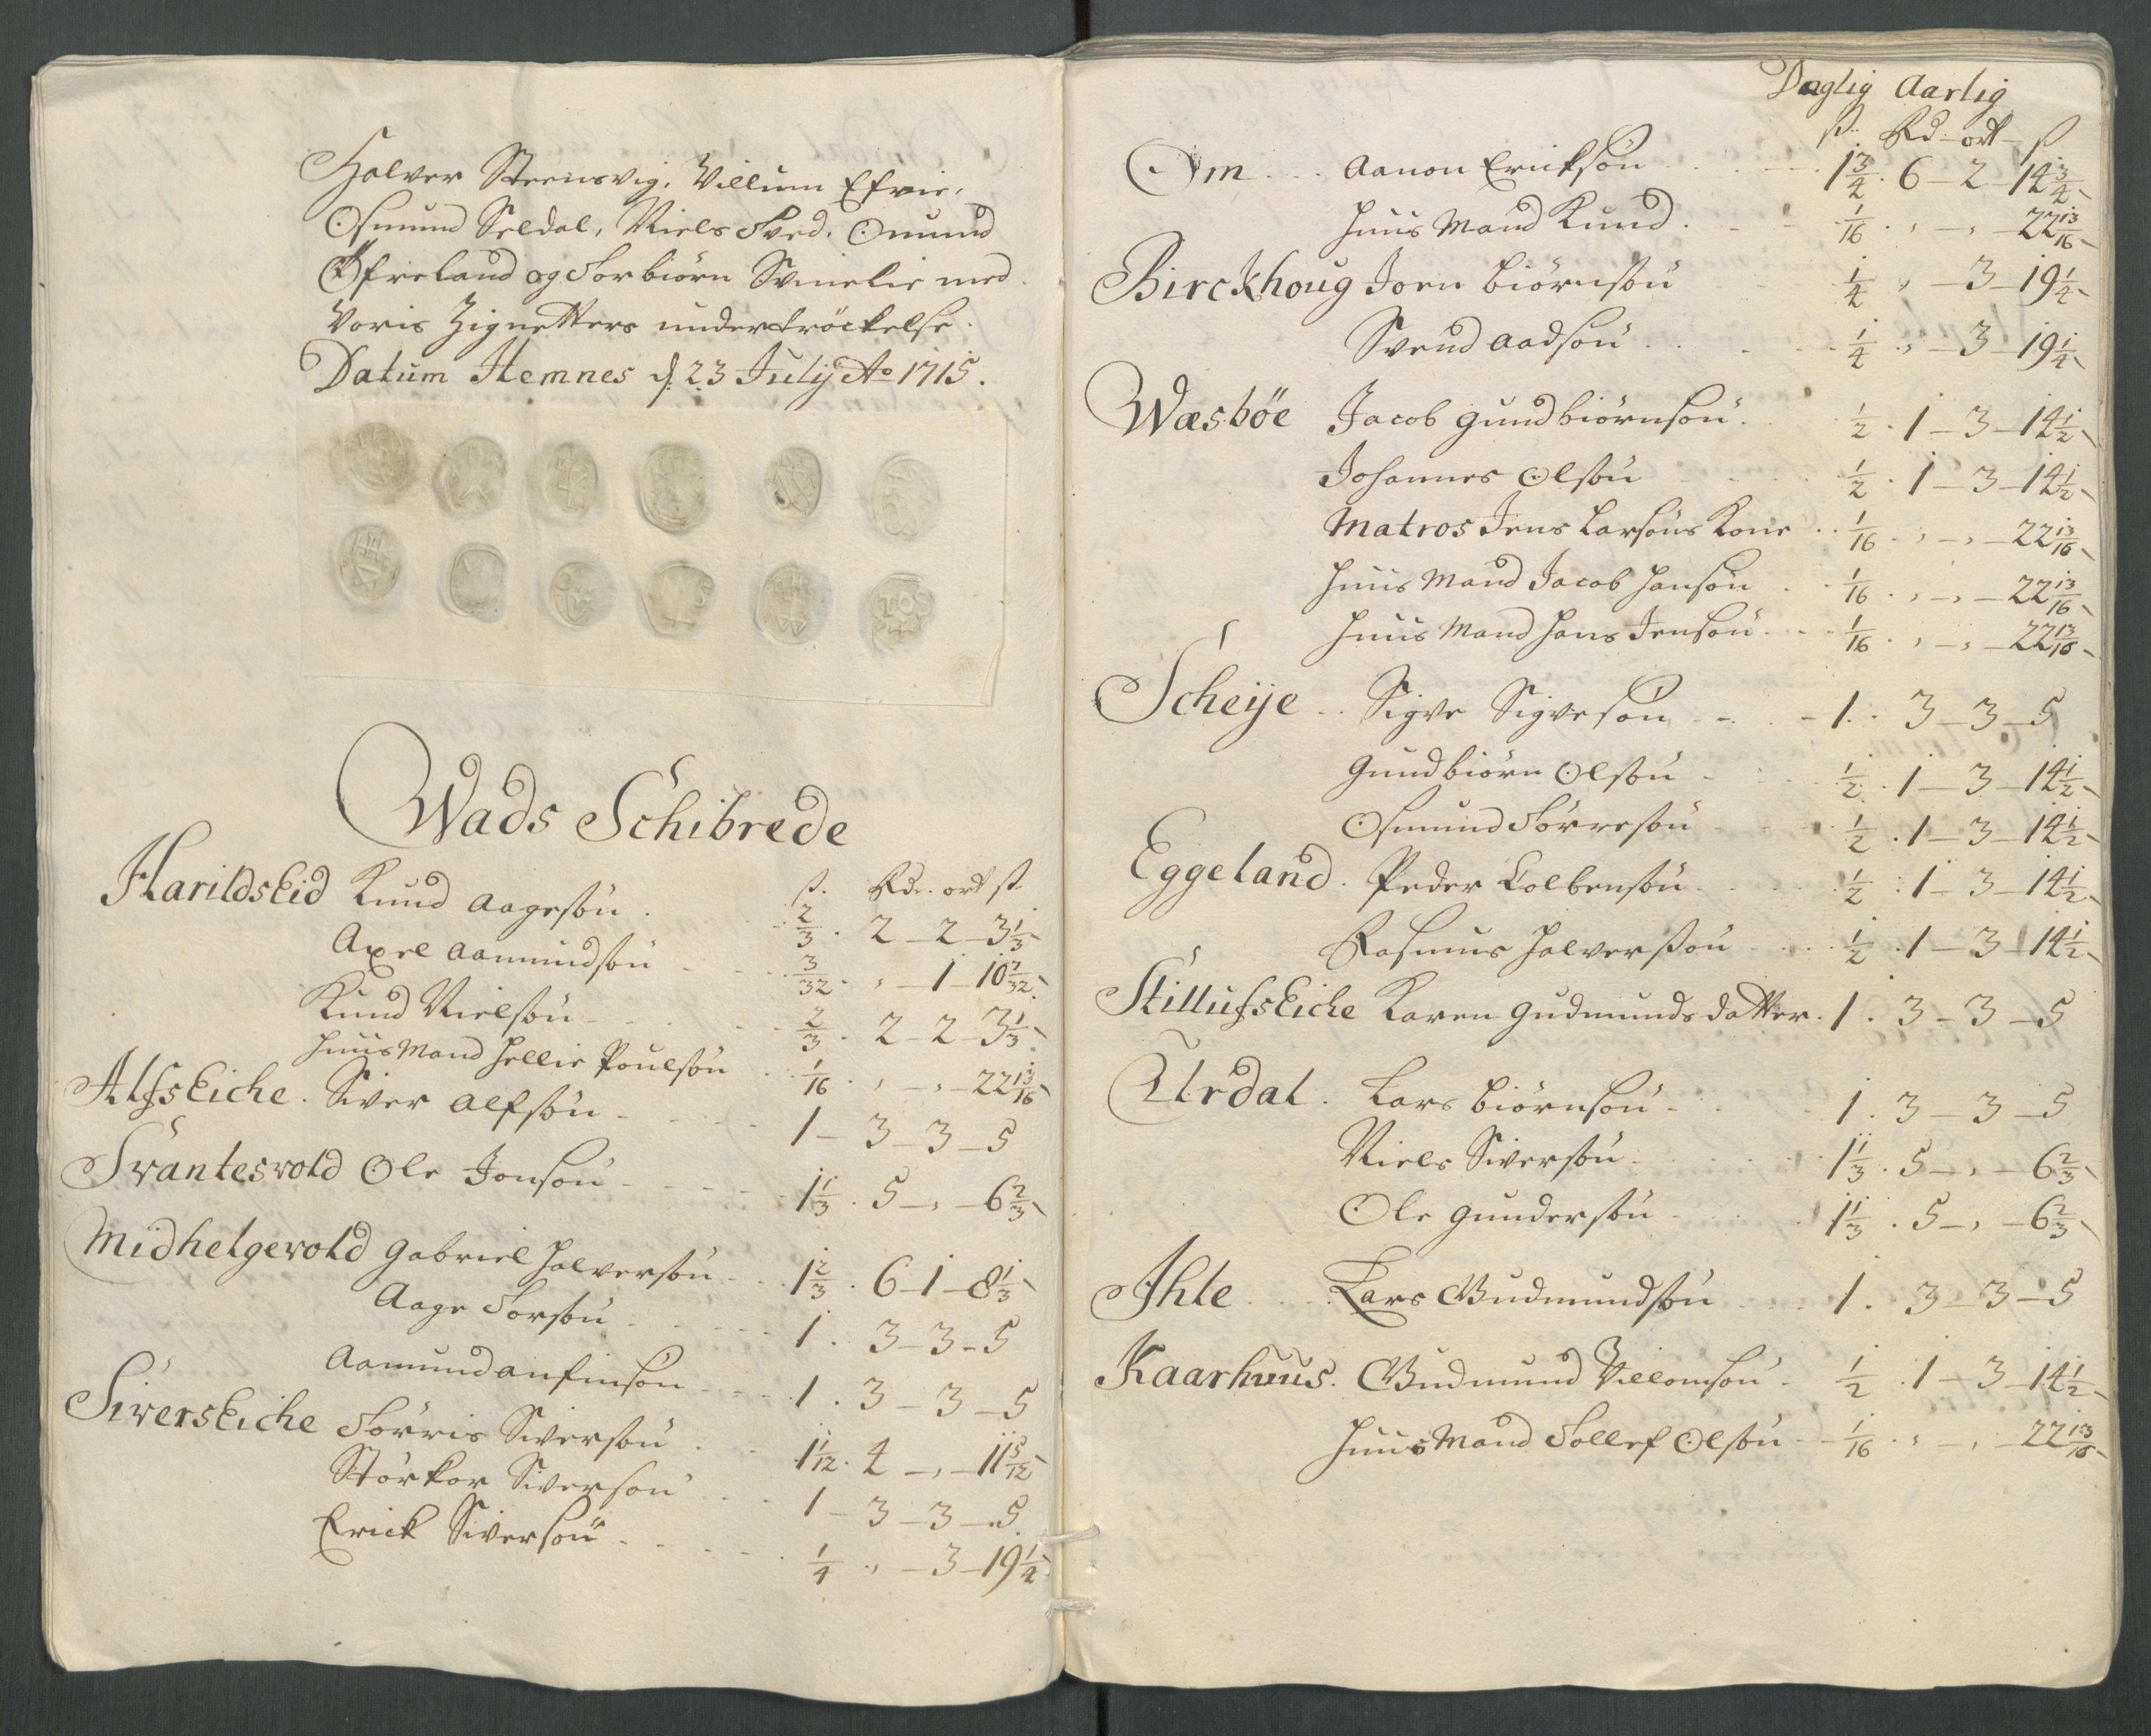 Halver Steensvig, Villum Efrie,
Osmund Seldal, Niels Tved, Omund
Øfreland og Torbiørn Svinelie med
Voris Zignetters undertröckelse.
Datum Hemnes d. 23 Julij Ao 1715.
Wads Schibrede
ß. Rdr. ort ß.
HarildsEid Knud Aagesøn . 2/3 . 2 - 2 - 3 1/3
Axel Aamundsøn 3/32 . , - 1 - 10 7/32
Knud Nielsøn 2/3 . 2 - 2 - 3 1/3
Huus Mand Hellie Poulsøn 1/16 . , - , - 22 13/16
AlfsEiche . Siver Alfsøn 1 - 3 - 3 - 5
Svantesvold Ole Jonsøn 1 1/3 . 5 - , - 6 2/3
Midhelgevold Gabriel Halversøn 1 2/3 . 6 - 1 - 8 1/3
Aage Torsøn 1 . 3 - 3 - 5
Aamund Anfinsøn 1 . 3 - 3 - 5
SiversEiche Torris Siversøn 1 1/12 . 4 - , - 11 5/12
Storkor Siversøn 1 - 3 - 3 - 5
Erick Siversøn 1/4 , - 3 - 19 1/4
Daglig Aarlig
ß. Rd. ort - ß
Om . . . Aanon Ericksøn 1 3/4 . 6 - 2 - 14 3/4
Huus Mand Knud . 1/16 . , - , - 22 13/16
Birckhoug Joen Biørnsøn 1/4 , - 3 - 19 1/4
Svend Aadsøn 1/4 . , - 3 - 19 1/4
Wæsböe Jacob Gundbiørnsøn . 1/2 . 1 - 3 - 14 1/2
Johannes Olsøn 1/2 . 1 - 3 - 14 1/2
Matros Jens Larsøns Kone 1/16 . , - , - 22 13/16
Huus Mand Jacob Hansøn 1/16 . , - , - 22 13/16
Huus Mand Hans Jensøn 1/16 . , - , - 22 13/16
Scheije . . Sigve Sigvesøn 1 . 3 - 3 - 5
Gundbiørn Olsøn 1/2 . 1 - 3 - 14 1/2
Osmund Torresøn 1/2 . 1 - 3 - 14 1/2
Eggeland . Peder Colbensøn 1/2 . 1 - 3 - 14 1/2
Rasmus Halversøn 1/2 . 1 - 3 - 14 1/2
StillufsEiche Karen Gudmunds datter . 1 . 3 - 3 - 5
Urdal . Lars Biørnsøn 1 . 3 - 3 - 5
Niels Siversøn 1 1/3 . 5 - , - 6 2/3
Ole Gundersøn 1 1/3 . 5 - , - 6 2/3
Ihle Lars Gudmundsøn 1 . 3 - 3 - 5
Kaarhuus . Gudmund Villomsøn 1/2 . 1 - 3 - 14 1/2
Huus Mand Tollef Olsøn 1/16 . , - , - 22 13/16